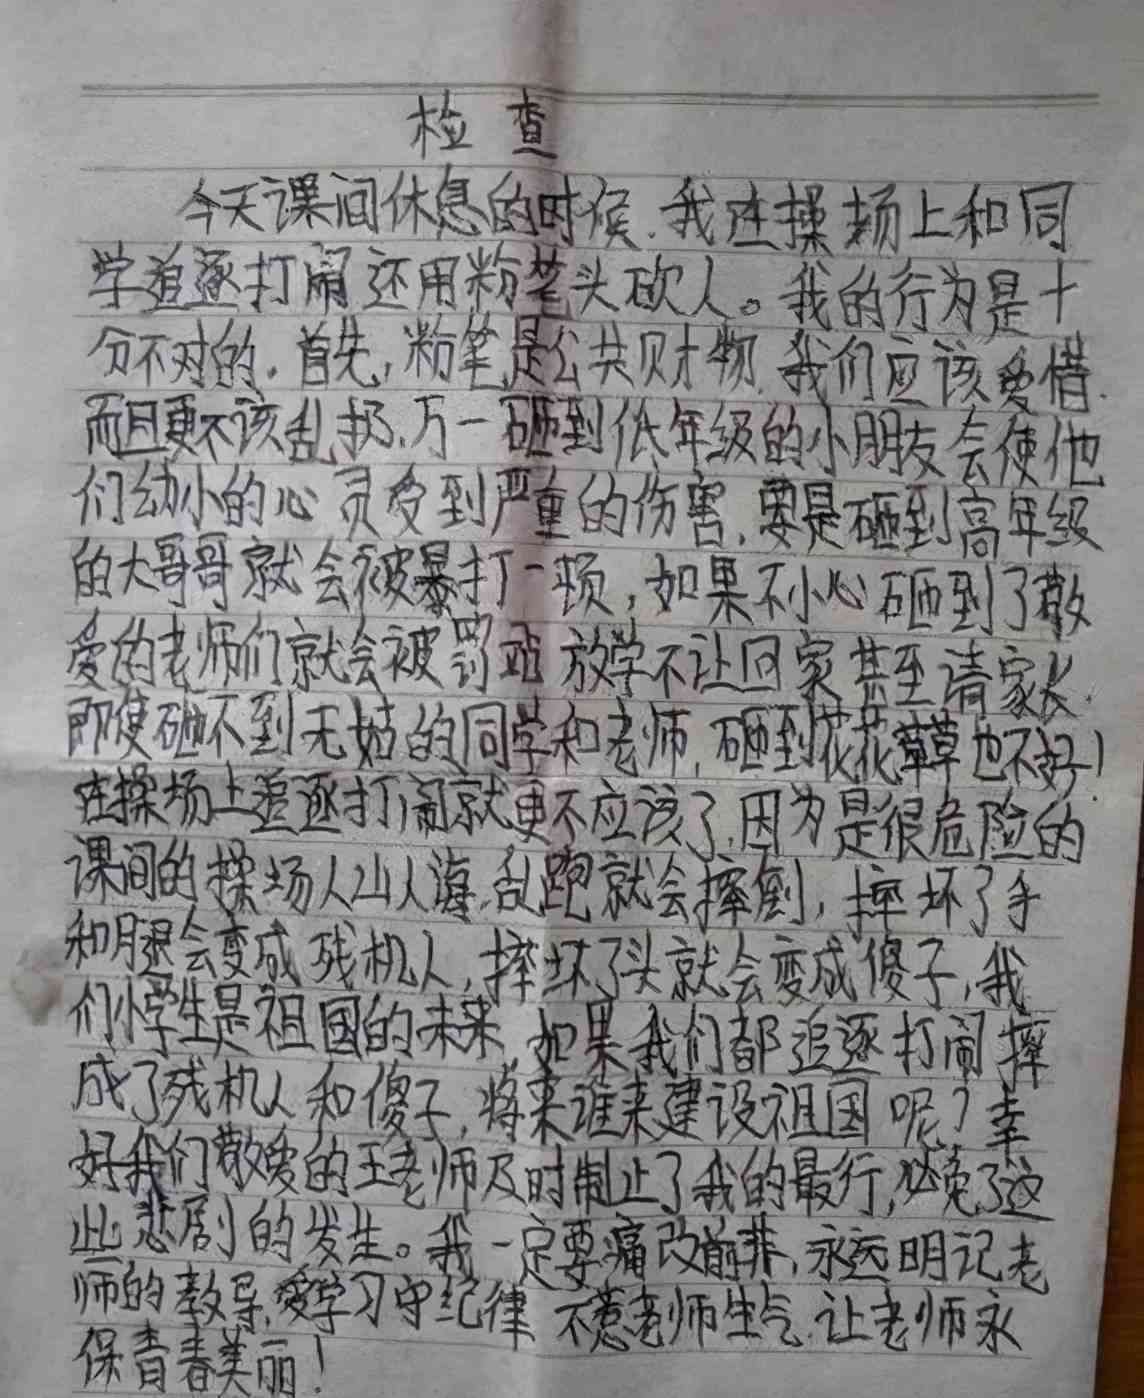 检查
今天课间休息的时候.我在操场上和同
学追逐打闹还用粉笔头砍人。我的行为是十
分不对的.首先,粉笔是公共财物.我们应该爱惜.
而且更不该乱扔.万一砸到低年级的小朋友会使他
们幼小的心灵受到严重的伤害,要是砸到高年级
的大哥哥就会被暴打一顿,如果不小心砸到了敬
爱的老师们就会被罚站放学不让回家甚至请家长.
即使砸不到无姑的同学和老师,砸到花花草草也不好!
在操场上追逐打闹就更不应该了,因为是很危险的
课间的操场人山人海,乱跑就会摔倒,摔坏了手
和腿会变成残机人,摔坏了头就会变成傻子,我
们小学生是祖国的未来,如果我们都追逐打闹摔
成了残机人和傻子,将来谁来建设祖国呢?幸
好我们敬爱的王老师及时制止了我的最行,必免了这
些悲剧的发生。我一定要痛改前非,永远明记老
师的教导,爱学习守纪律不惹老师生气.让老师永
保青春美丽!